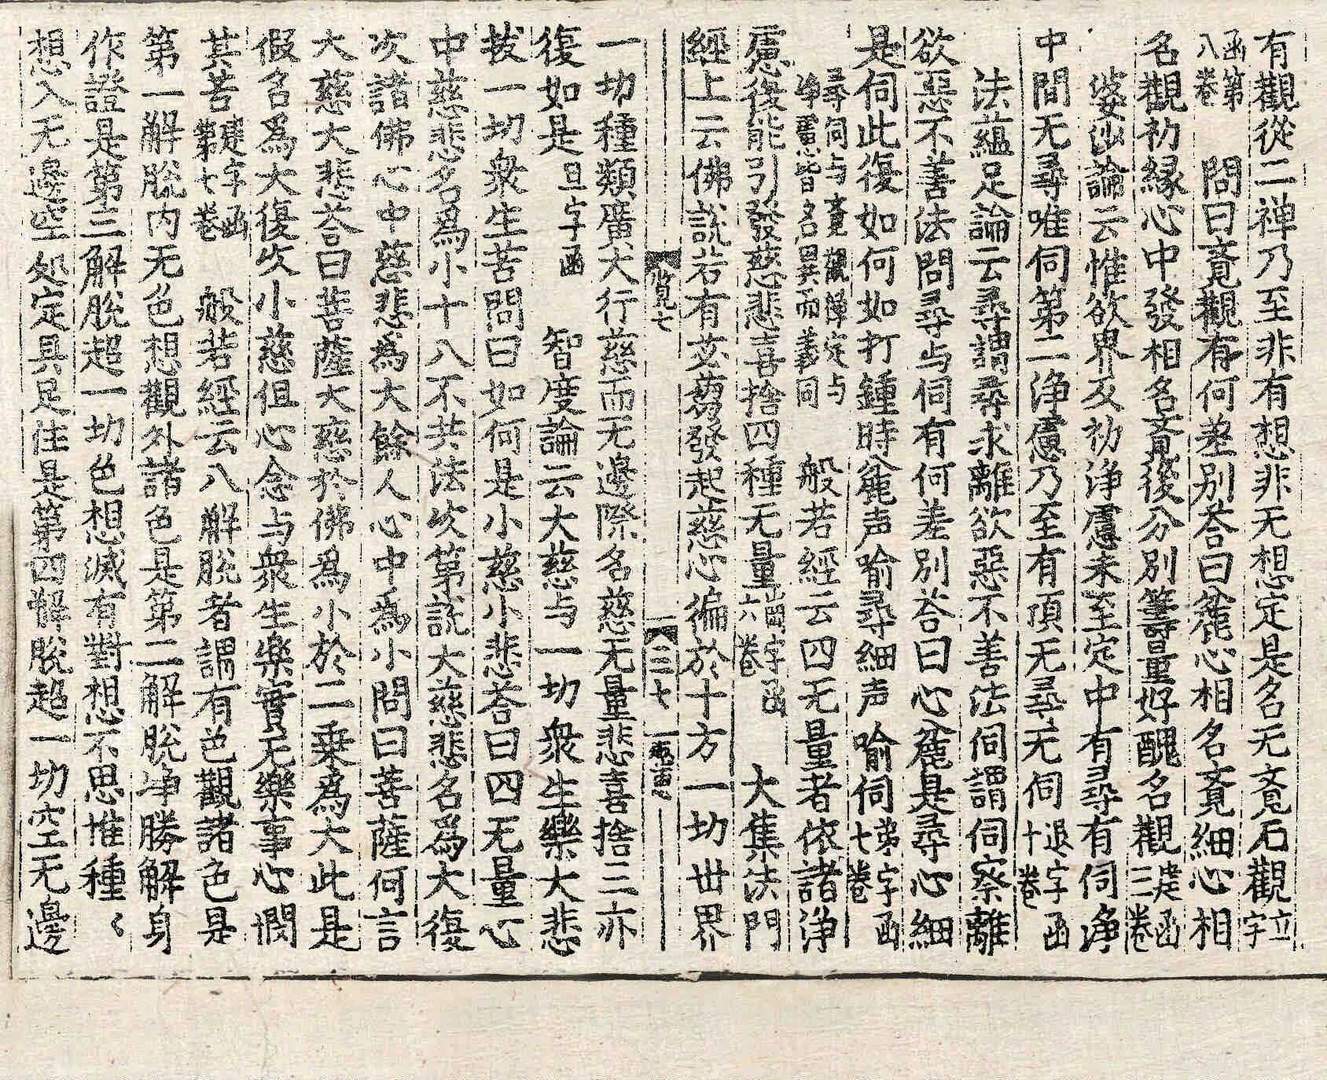 有觀從二禅乃至非有想非无想定是名无覔无觀立字
函第八卷　問曰覔觀有何差別荅曰麁心相名覔細心相
名觀初緣心中發相名覔後分別籌量好醜名觀建函三卷
婆沙論云惟欲界及初浄慮未至定中有尋有伺浄
中間无尋唯伺第二浄慮乃至有頂无尋无伺退字函十卷
法蘊足論云尋謂尋求離欲惡不善法伺謂伺察離
欲惡不善法問尋与伺有何差別荅曰心麁是尋心細
是伺此復如何如打鍾時麁声喻尋細声喻伺弟字函七卷
尋伺与覔觀禅定与浄慮皆名異而義同　般若經云四无量者依諸浄
慮復能引發慈悲喜捨四種无量罔字函六卷　大集法門
經上云佛說若有苾蒭發起慈心徧於十方一切世界
覧七　二七
一切種類廣大行慈而无邊際名慈无量悲喜捨三亦
復如是旦字函　智度論云大慈与一切衆生樂大悲
拔一切衆生苦問曰如何是小慈小悲荅曰四无量心
中慈悲名爲小十八不共法次第說大慈悲名爲大復
次諸佛心中慈悲為大餘人心中為小問曰菩薩何言
大慈大悲荅曰菩薩大慈於佛爲小於二乗爲大此是
假名爲大復次小慈但心念与衆生樂實无樂事心憫
其苦建字函第七卷　般若經云八解脫者謂有色觀諸色是
第一解脫内无色想觀外諸色是第二解脫浄勝解身
作證是第三解脫超一切色想滅有對想不思惟種〻
想入无邊空处定具足住是第四解脫超一切空无邊